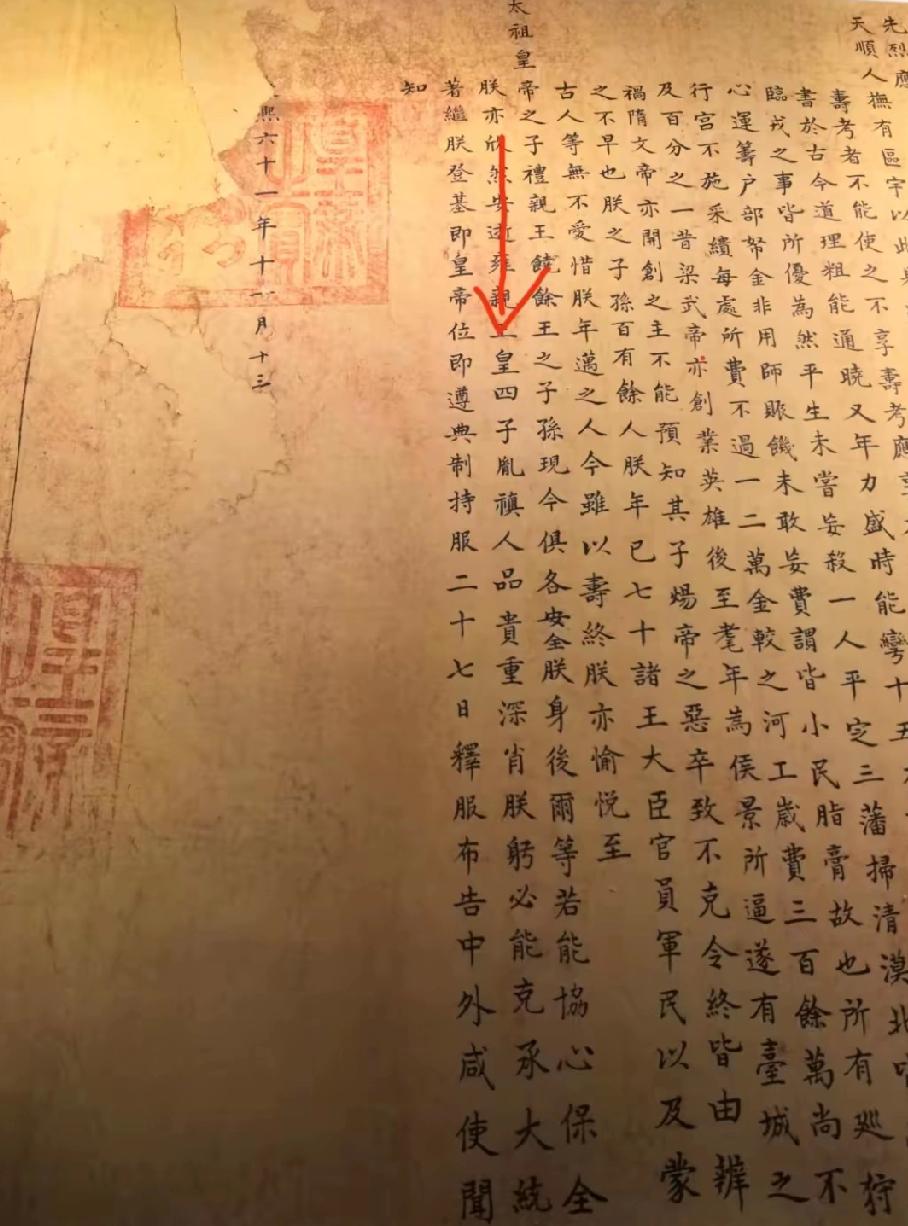 先烈應
天順人撫有區宇以此
壽考者不能使之不享壽考應
書於古今道理粗能通曉又年力盛時能彎十五
臨戎之事皆所優為然平生未嘗妄殺一人平定三藩掃清漠北
心運籌戶部帑金非用師賑饑未敢妄費謂皆小民脂膏故也所有巡狩
行宮不施采繢每處所費不過一二萬金較之河工歲費三百餘萬尚不
及百分之一昔梁武帝亦創業英雄後至耄年為侯景所逼遂有臺城之
禍隋文帝亦開創之主不能預知其子煬帝之惡卒致不克令終皆由辨
之不早也朕之子孫百有餘人朕年已七十諸王大臣官員軍民以及蒙
古人等無不愛惜朕年邁之人今雖以壽終朕亦愉悅至
太祖皇帝之子禮親王饒餘王之子孫現今俱各安全朕身後爾等若能協心保全
朕亦欣然安逝雍親王皇四子胤禛人品貴重深肖朕躬必能克承大統
著繼朕登基即皇帝位即遵典制持服二十七日釋服布告中外咸使聞
知
熙六十一年十一月十三